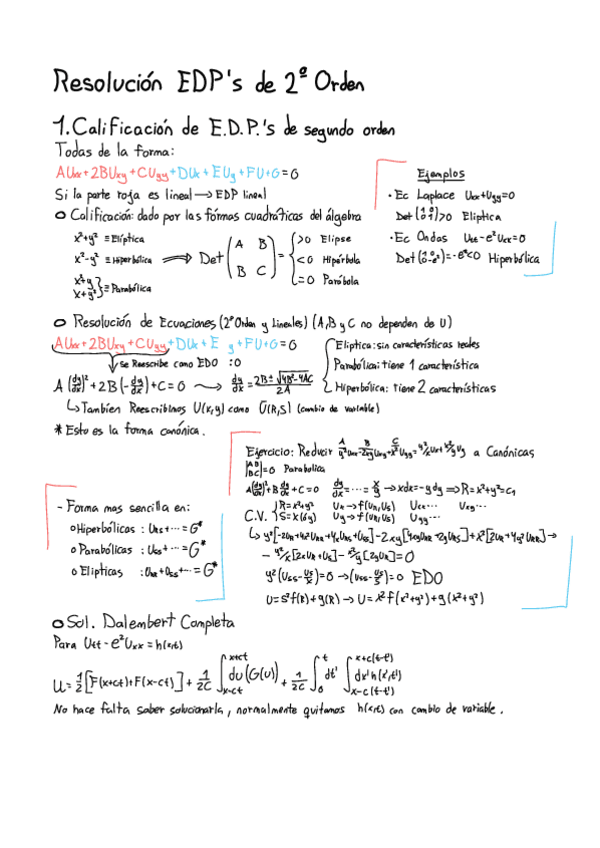 Resolución EDP's de 2º Orden
1. Calificación de E.D.P.'s de segundo orden
Todas de la forma:
AUxx+2BUxy+CUyy+DUx+EUy+FU+G=0
Si la parte roja es lineal → EDP lineal
Calificación: dado por las fórmas cuadráticas del álgebra
x²+y² ≡ Elíptica
x²-y² ≡ Hiperbólica ⟹ Det (A B
B C) = { >0 Elipse
<0 Hipérbola
=0 Parábola
x²+y
x+y² } ≡ Parabólica
Ejemplos
· Ec Laplace Uxx+Uyy=0
Det(1 0 0 1)>0 Eliptica
· Ec Ondas Utt-e²Uxx=0
Det(1 0 0 -e²)=-e²<0 Hiperbólica
Resolución de Ecuaciones (2º Orden y Lineales) (A,B y C no dependen de U)
AUxx+2BUxy+CUyy+DUx+E y+FU+G=0
se Reescribe como EDO :0
A(dy/dx)²+2B(-dy/dx)+C=0 ⟶ dy/dx = 2B±√4B²-4AC / 2A
Eliptica: sin características reales
Parabólica: tiene 1 característica
Hiperbólica: tiene 2 características
↳ Tambien Reescribimos U(x,y) como Ũ(R,S) (cambio de variable)
* Esto es la forma canónica.
Ejercicio: Reducir y²Uxx-2xyUxy+x²Uyy=y²/x Ux+x²/y Uy a Canónicas
|A B B C|=0 Parabolica
C.V. { R=x²+y² Ux→f(UR,US) Uxx... Uxy...
S=x (ó y) Uy→f(UR,US) Uyy...
y²(USS-US/S)=0→(USS-US/S)=0 EDO
U=S²f(R)+g(R)→U=x²f(x²+y²)+g(x²+y²)
- Forma mas sencilla en:
Hiperbólicas : URS+...=G*
Parabólicas : USS+...=G*
Elipticas : URR+USS+...=G*
Sol. Dalembert Completa
Para Utt-e²Uxx=h(x,t)
U=1/2[F(x+ct)+F(x-ct)]+1/2C ∫x-ct x+ct du(G(u))+1/2C ∫0 t dt' ∫x-c(t-t') x+c(t-t') dx' h(x',t')
No hace falta saber solucionarla, normalmente quitamos h(x,t) con cambio de variable.